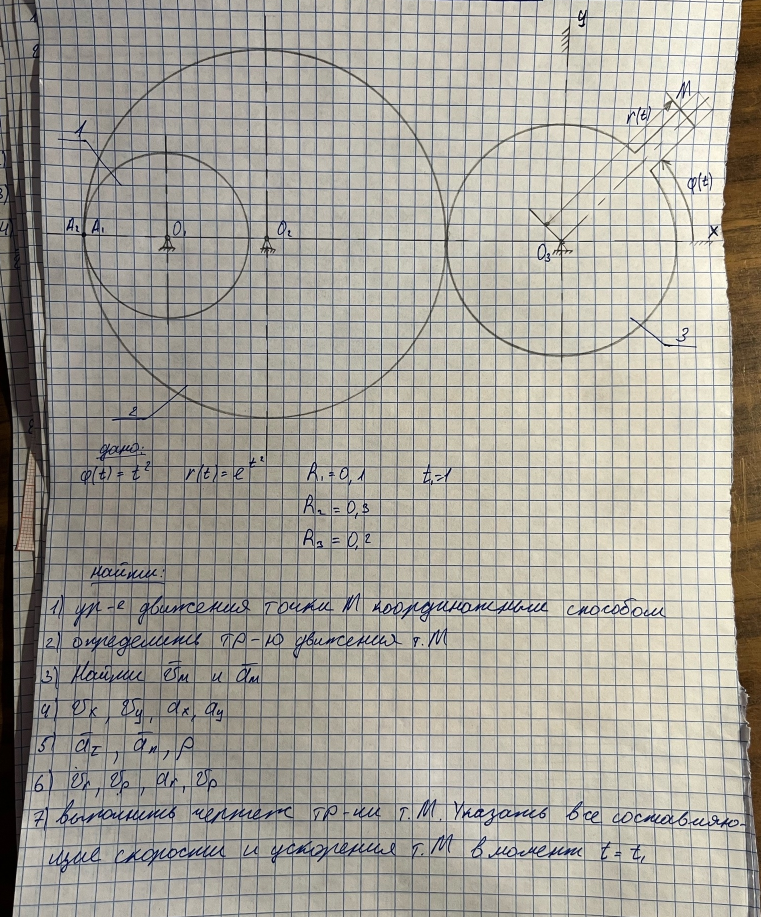 y
M
r(t)
1
φ(t)
A₂ A₁ O₁ O₂ O₃ x
3
2
дано:
φ(t) = t² r(t) = e^t² R₁ = 0,1 t₁=1
R₂ = 0,3
R₃ = 0,2
найти:
1) ур-е движения точки M координатным способом
2) определить тр-ю движения т. M
3) Найти v̄м и āм
4) vx, vy, ax, ay
5) āτ, ān, ρ
6) v̄r, v̄p, ar, vp
7) выполнить чертеж тр-ии т. M. Указать все составляю-
щие скорости и ускорения т. M в момент t = t₁